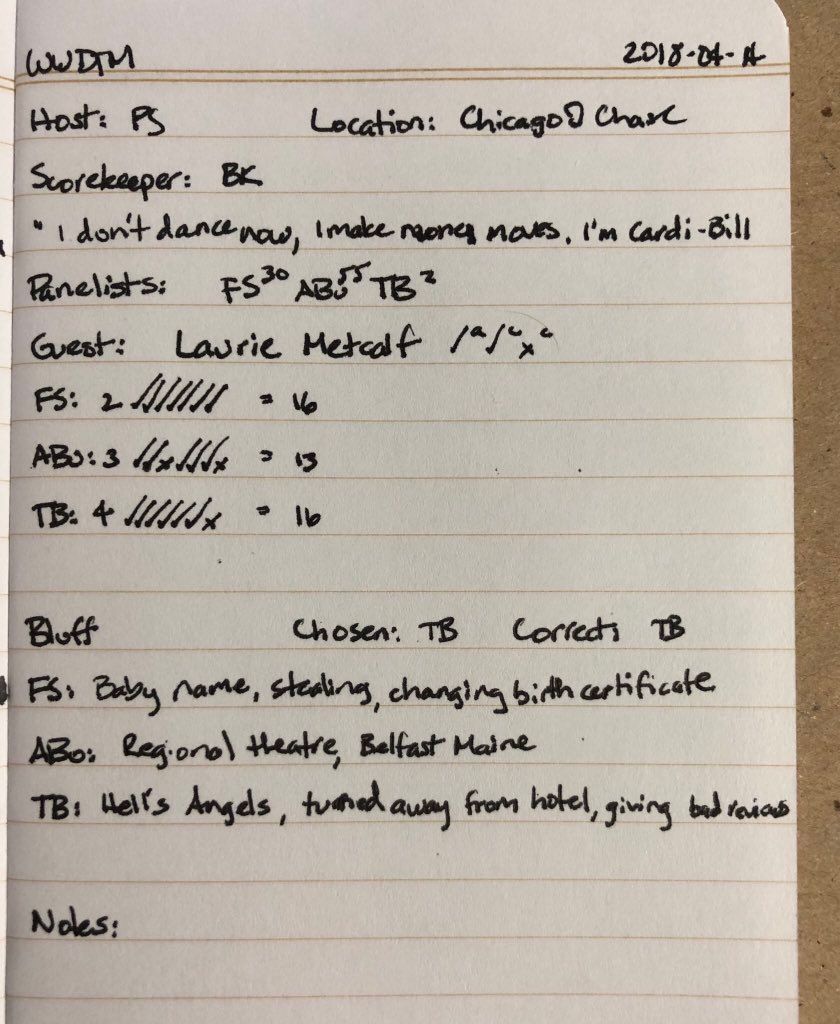 WWDTM 2018-04-14
Host: PS Location: Chicago Chase
Scorekeeper: BK
"I don't dance now, I make money moves. I'm Cardi-Bill
Panelists: FS³⁰ ABo⁵⁵ TB²
Guest: Laurie Metcalf
FS: 2 = 16
ABo: 3 = 13
TB: 4 = 16
Bluff Chosen: TB Correct: TB
FS: Baby name, stealing, changing birth certificate
ABo: Regional theatre, Belfast Maine
TB: Hell's Angels, turned away from hotel, giving bad reviews
Notes: